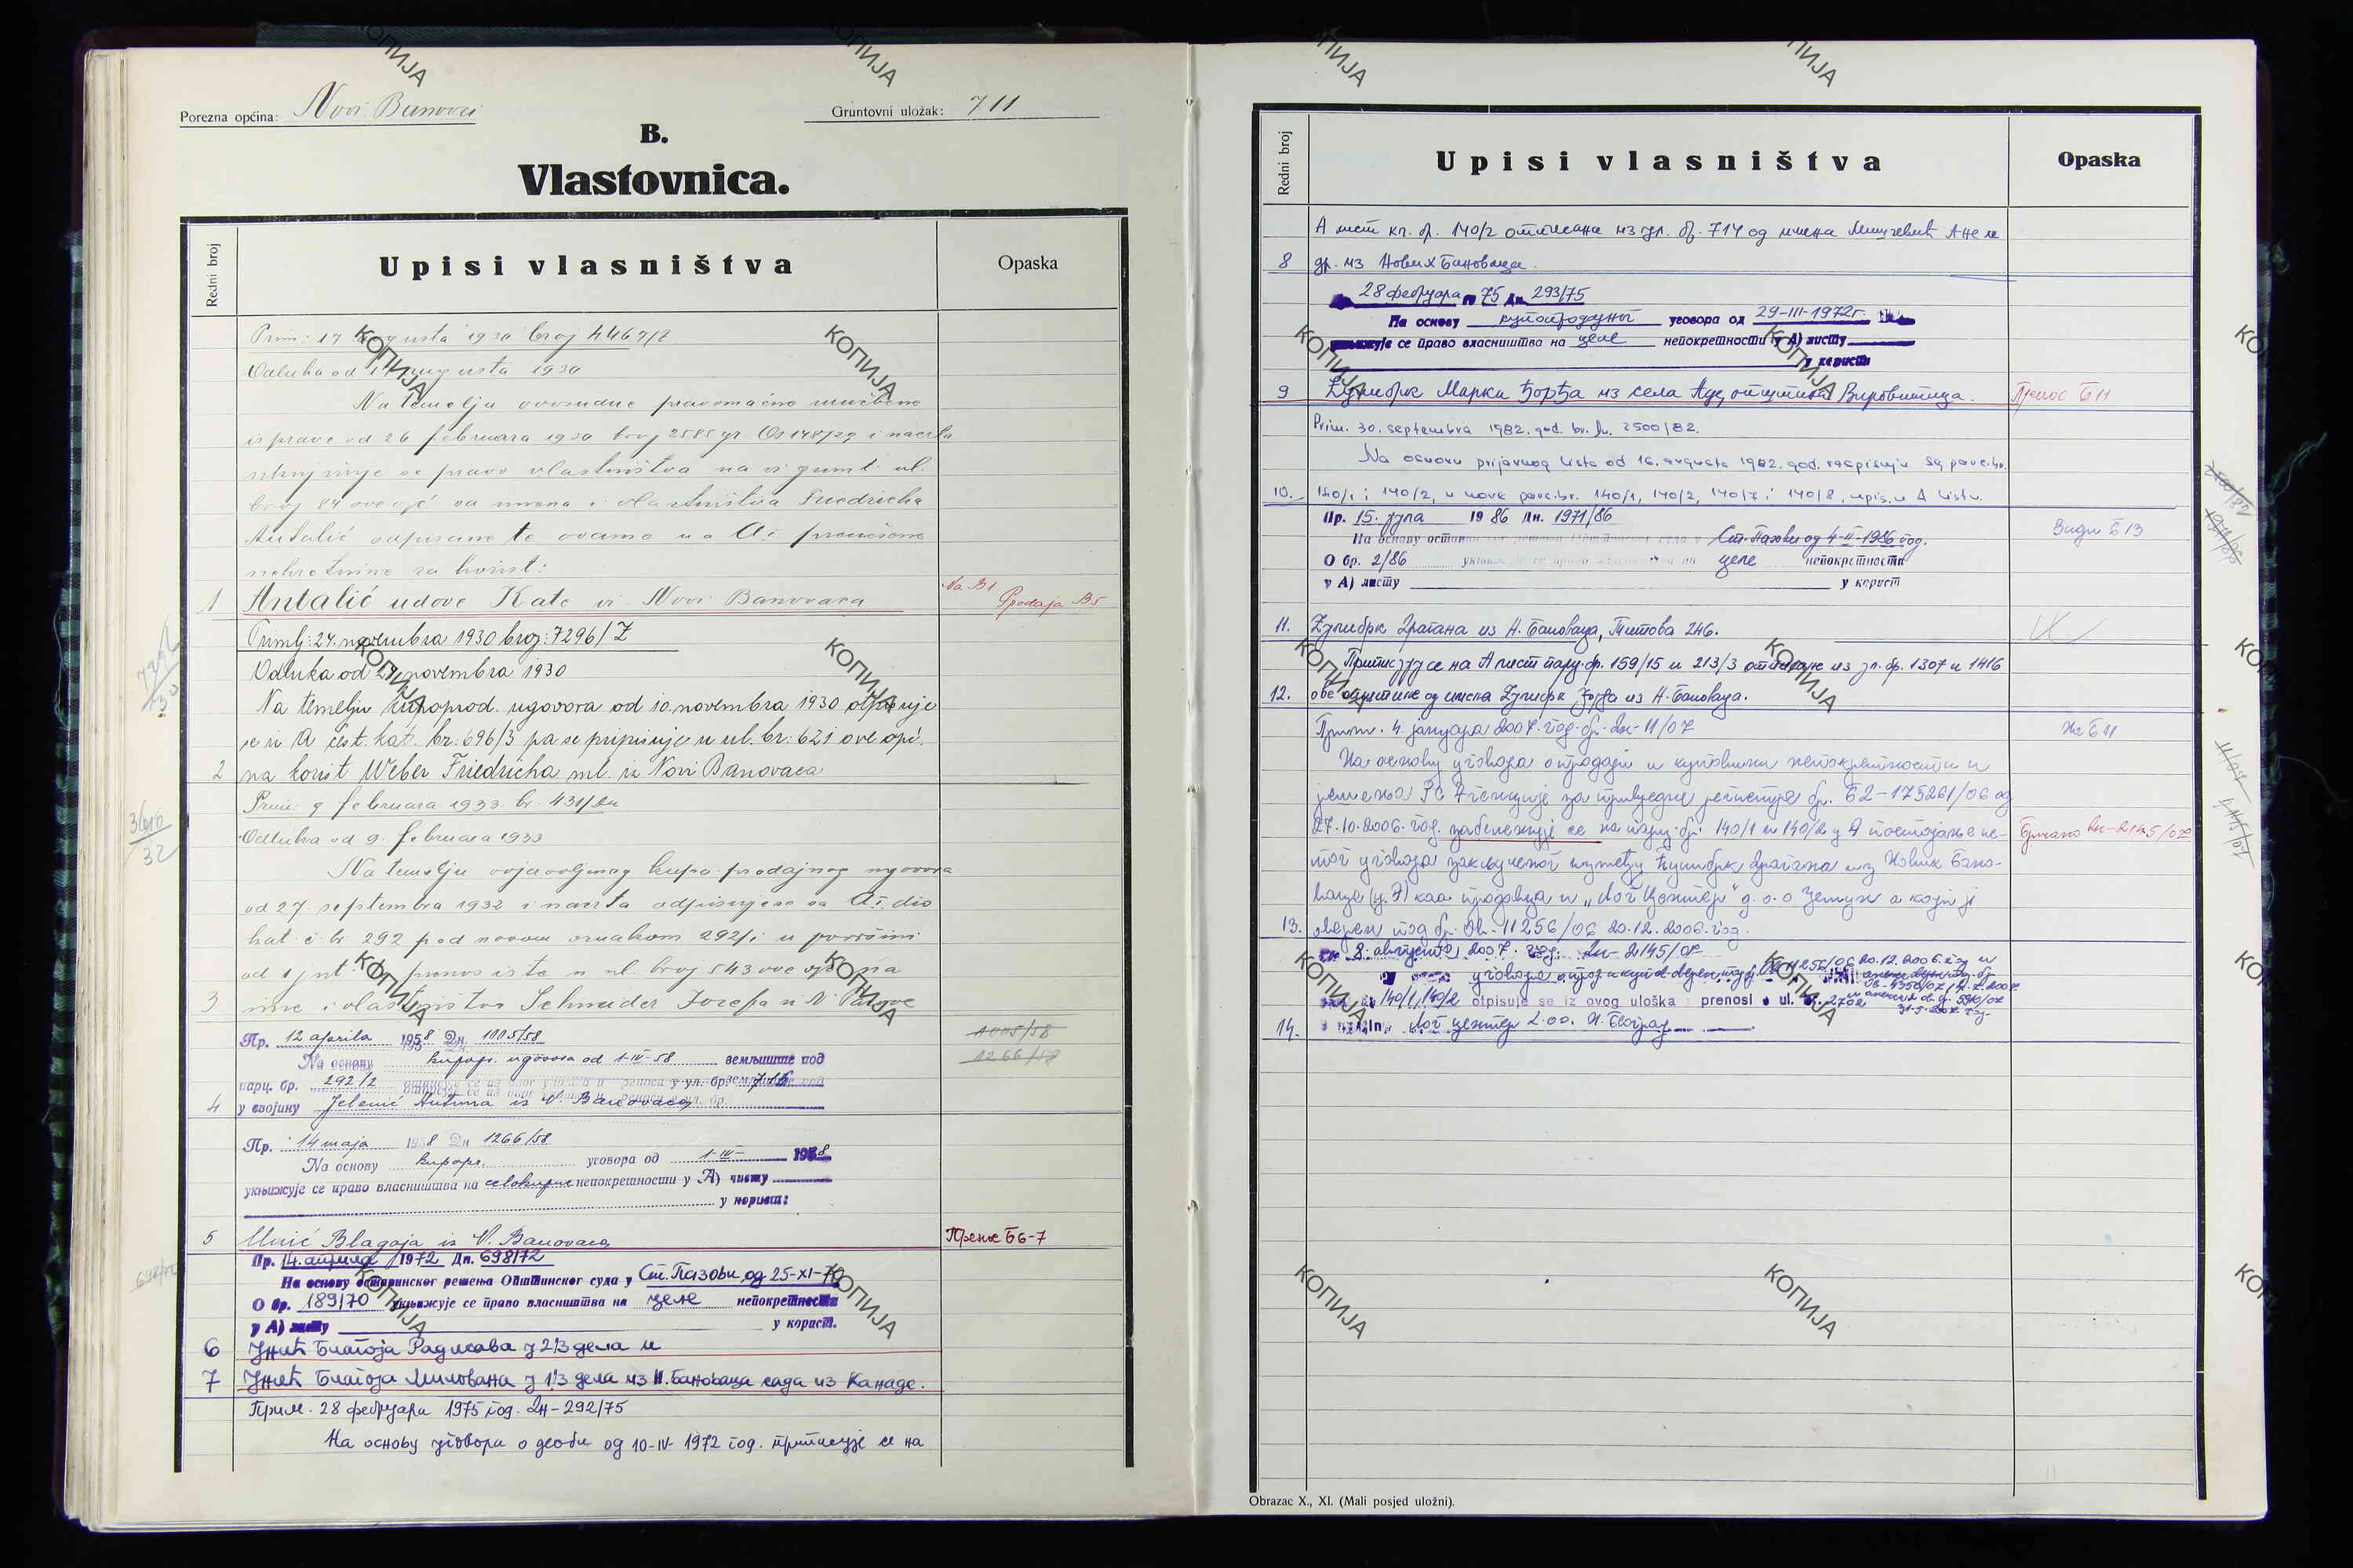 Porezna općina: Novi Banovci
Gruntovni uložak: 711
B.
Vlastovnica.
Redni broj
Upisi vlasništva
Opaska
Prim: 17 augusta 1930 broj 4467/Z
Odluka od augusta 1930
Na temelju ovosudne pravomoćne
isprave od 26 februara 1930 broj 2585 gr. Os 148/29 i nacrta
uknjižuje se pravo vlastništva na iz grunt. ul.
broj 84 ove opć. sa imena i vlastništva Friedricha
Antalić odpisane te ovamo u A. prenešene
nekretnine za korist:
1 Antalić udove Kate iz Novi Banovaca
Na B1
Prodaja B5
Primlj: 24. novembra 1930 broj: 7296/Z
Odluka od 29 novembra 1930
Na temelju kupoprod. ugovora od 10 novembra 1930 otpisuje
se iz A čest. kat. br. 696/3 pa se pripisuje u ul. br. 621 ove opć.
2 na korist Weber Friedricha ml. iz Novi Banovaca
Prim: 9 februara 1933 br. 431/Dn
Odluka od 9. februara 1933
Na temelju ovjerovljenog kupo-prodajnog ugovora
od 27. septembra 1932 i nacrta odpisuje se sa A. dio
kat. č. br. 292 pod novom oznakom 292/1 u površini
od 1 jut. prenos isto u ul. broj 543 ove opć. na
3 ime i vlastništvo Schneider Josefa iz N. Pazove
Пр. 12 aprila 1958 Дн. 1005/58
1005/58
На основу kupopr. ugovora od 1-IV-58 земљиште под
1266/58
парц. бр. 292/2 отписује се из овог улошка и преноси у ул. бр. 715
4 у својину Jelenić Antuna iz N. Banovaca
Пр. 14 maja 1958 Дн 1266/58
На основу kupopr. уговора од 1-IV- 1958
укњижује се право власништва на celokupne непокретности у А) листу
у корист:
5 Unić Blagoja iz N. Banovaca
Пренос Б6-7
Пр. 14. априла 1972 Дн. 698/72
На основу оставинског решења Општинског суда у Ст. Пазови од 25-XI-70
О бр. 189/70 укњижује се право власништва на целе непокретности
у А) листу у корист.
6 Унић Благоја Радисава у 2/3 дела и
7 Унић Благоја Милована у 1/3 дела из Н. Бановаца сада из Канаде.
Прим. 28 фебруара 1975 год. Дн-292/75
На основу уговора о деоби од 10-IV-1972 год. приписује се на
7296
30
3610
32
698/72
Redni broj
Upisi vlasništva
Opaska
А лист кп. бр. 140/2 отписана из ул. бр. 714 од имена Ане и
8 др. из Нових Бановаца.
28 фебруара 75 Дн. 293/75
На основу купопродајног уговора од 29-III-1972г.
укњижује се право власништва на целе непокретности у А) листу
у корист
9 Марка Ђорђа из села Аде, општина Вировитица.
Пренос Б 11
Prim. 30. septembra 1982. god. br. Dn. 2500/82.
Na osnovu prijavnog lista od 16. avgusta 1982. god. raspisuju se parc. br.
10. 140/1 i 140/2, u nove parc. br. 140/1, 140/2, 140/7 i 140/8, upis. u A listu.
Пр. 15. јула 1986 Дн. 1971/86
На основу оставинског решења Општинског суда у Ст. Пазови од 4-II-1986 год.
Види Б 13
О бр. 2/86 укњижује се право власништва на целе непокретности
у А) листу у корист
11. Драгана из Н. Бановаца, Титова 246.
Приписују се на А лист парц. бр. 159/15 и 213/3 отписане из ул. бр. 1307 и 1416
12. ове општине од имена из Н. Бановаца.
Прим. 4. јануара 2007. год. бр. Дн-11/07
На Б 11
На основу уговора о продаји и куповини непокретности и
решења РС Агенције за привредне регистре бр. БД-175261/06 од
27.10.2006. год. забележује се на парц. бр. 140/1 и 140/2 у А постојање не-
Брисано Дн-2145/07
тог уговора закљученог између Драгана из Нових Бано-
ваца (у. 7) као продавца и „Лог Центар" д.о.о Земун а који је
13. оверен под бр. Ов.-11256/06 20.12.2006. год.
8. августа 2007. год. Дн-2145/07
140/1, 140/2 otpisuje se iz ovog uloška i prenosi u ul. br. 2702
14. Лог центар д.о.о. Београд
2500/82
1971/86
11/07
2145/07
Obrazac X., XI. (Mali posjed uložni).
КОПИЈА